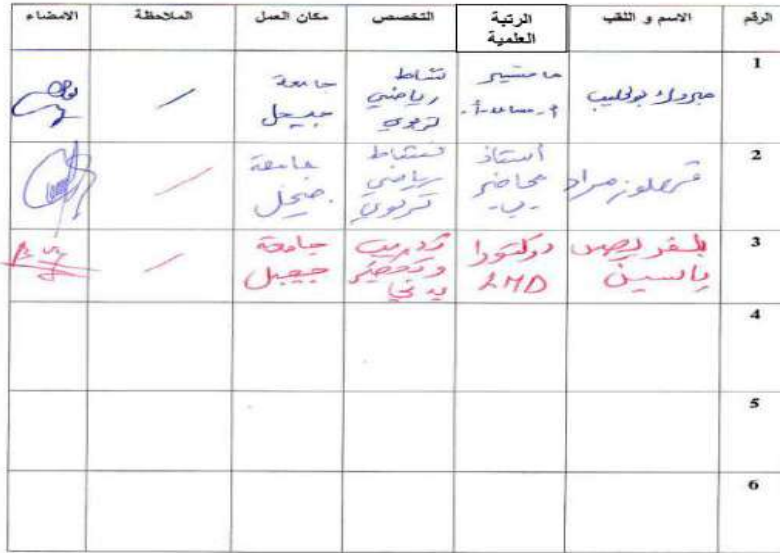 الرقم الاسم و اللقب الرتبة العلمية التخصص مكان العمل الملاحظة الامضاء
1 مبروك بولحليب ماجستير أ-مساعد-أ- نشاط رياضي تربوي جامعة جيجل /
2 مراد أستاذ محاضر -ب- نشاط رياضي تربوي جامعة جيجل /
3 ياسين دكتورا LMD تدريب وتحضير بدني جامعة جيجل /
4
5
6